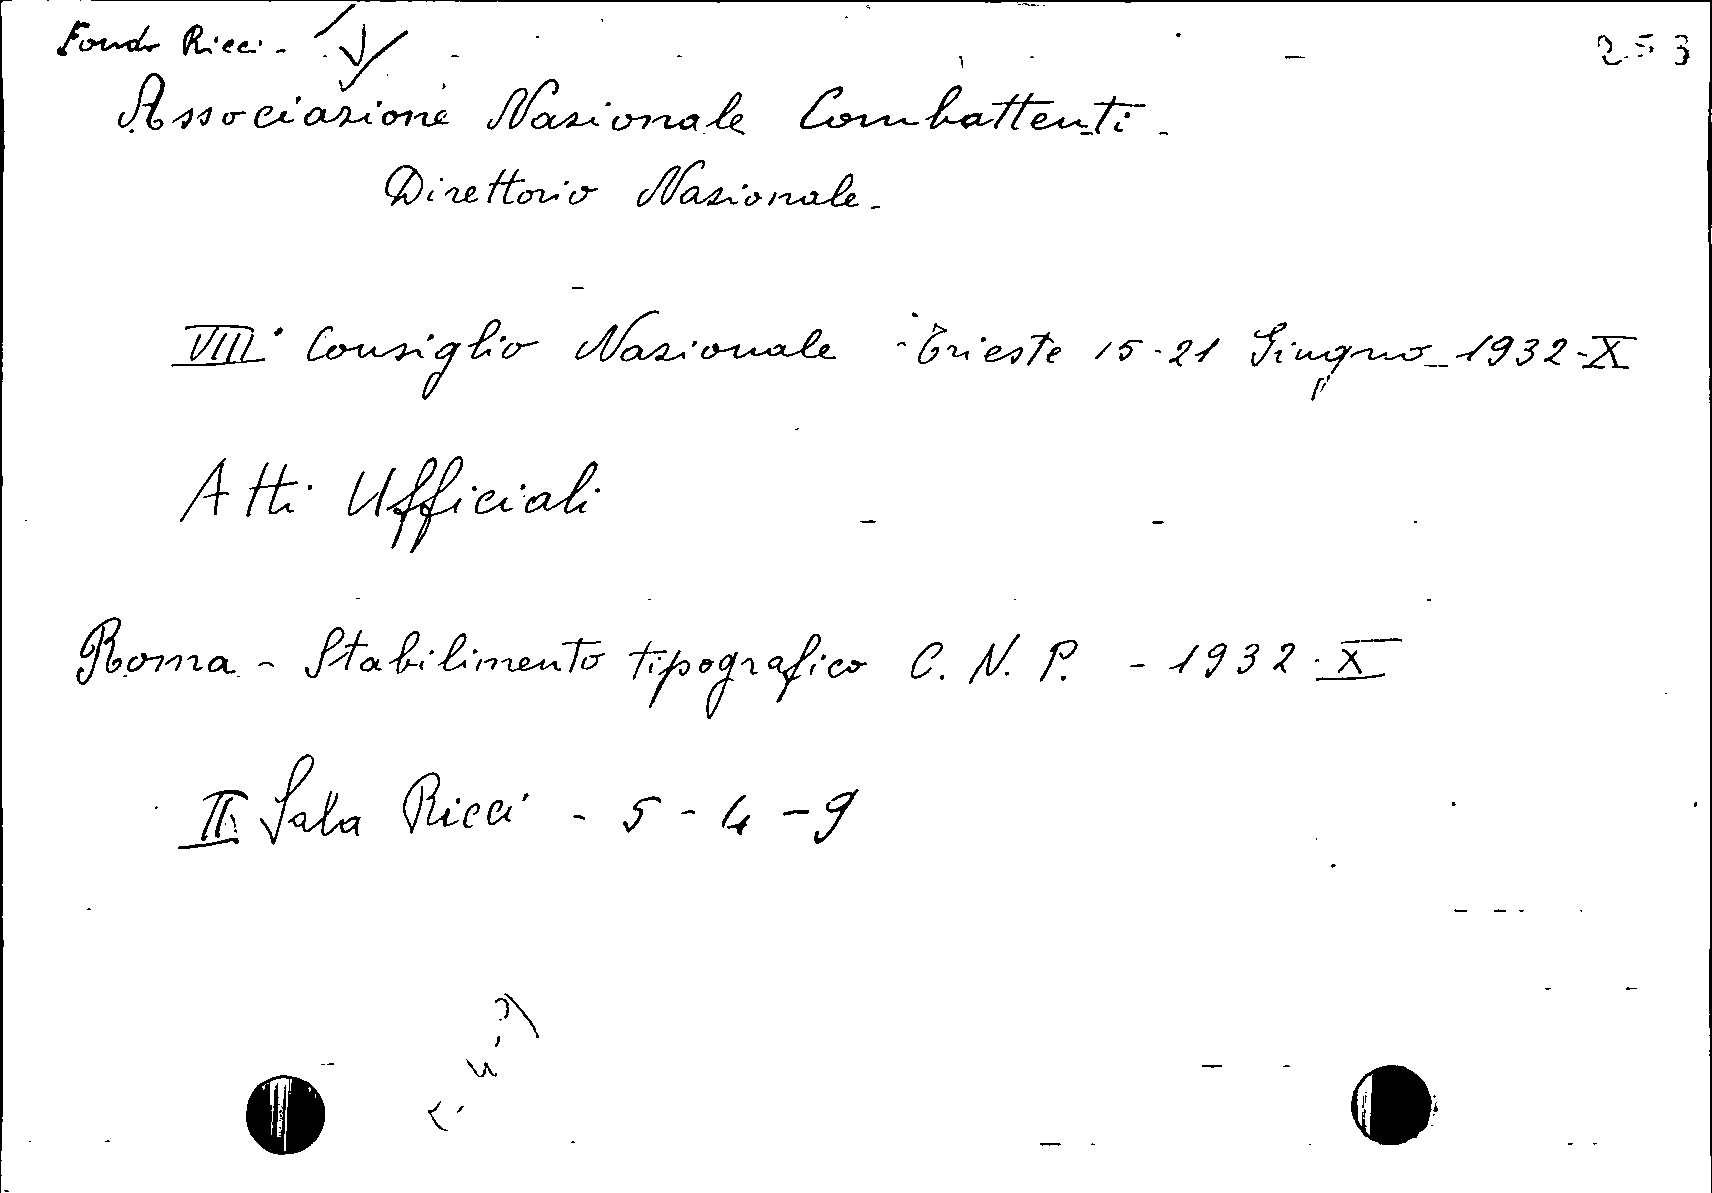 Fondo Ricci - 253
Associazione Nazionale Combattenti -
Direttorio Nazionale -
VIII° Consiglio Nazionale - Trieste 15-21 Giugno - 1932-X
Atti Ufficiali
Roma - Stabilimento tipografico C. N. P. - 1932-X
II Sala Ricci - 5 - 4 - 9
5-4-9